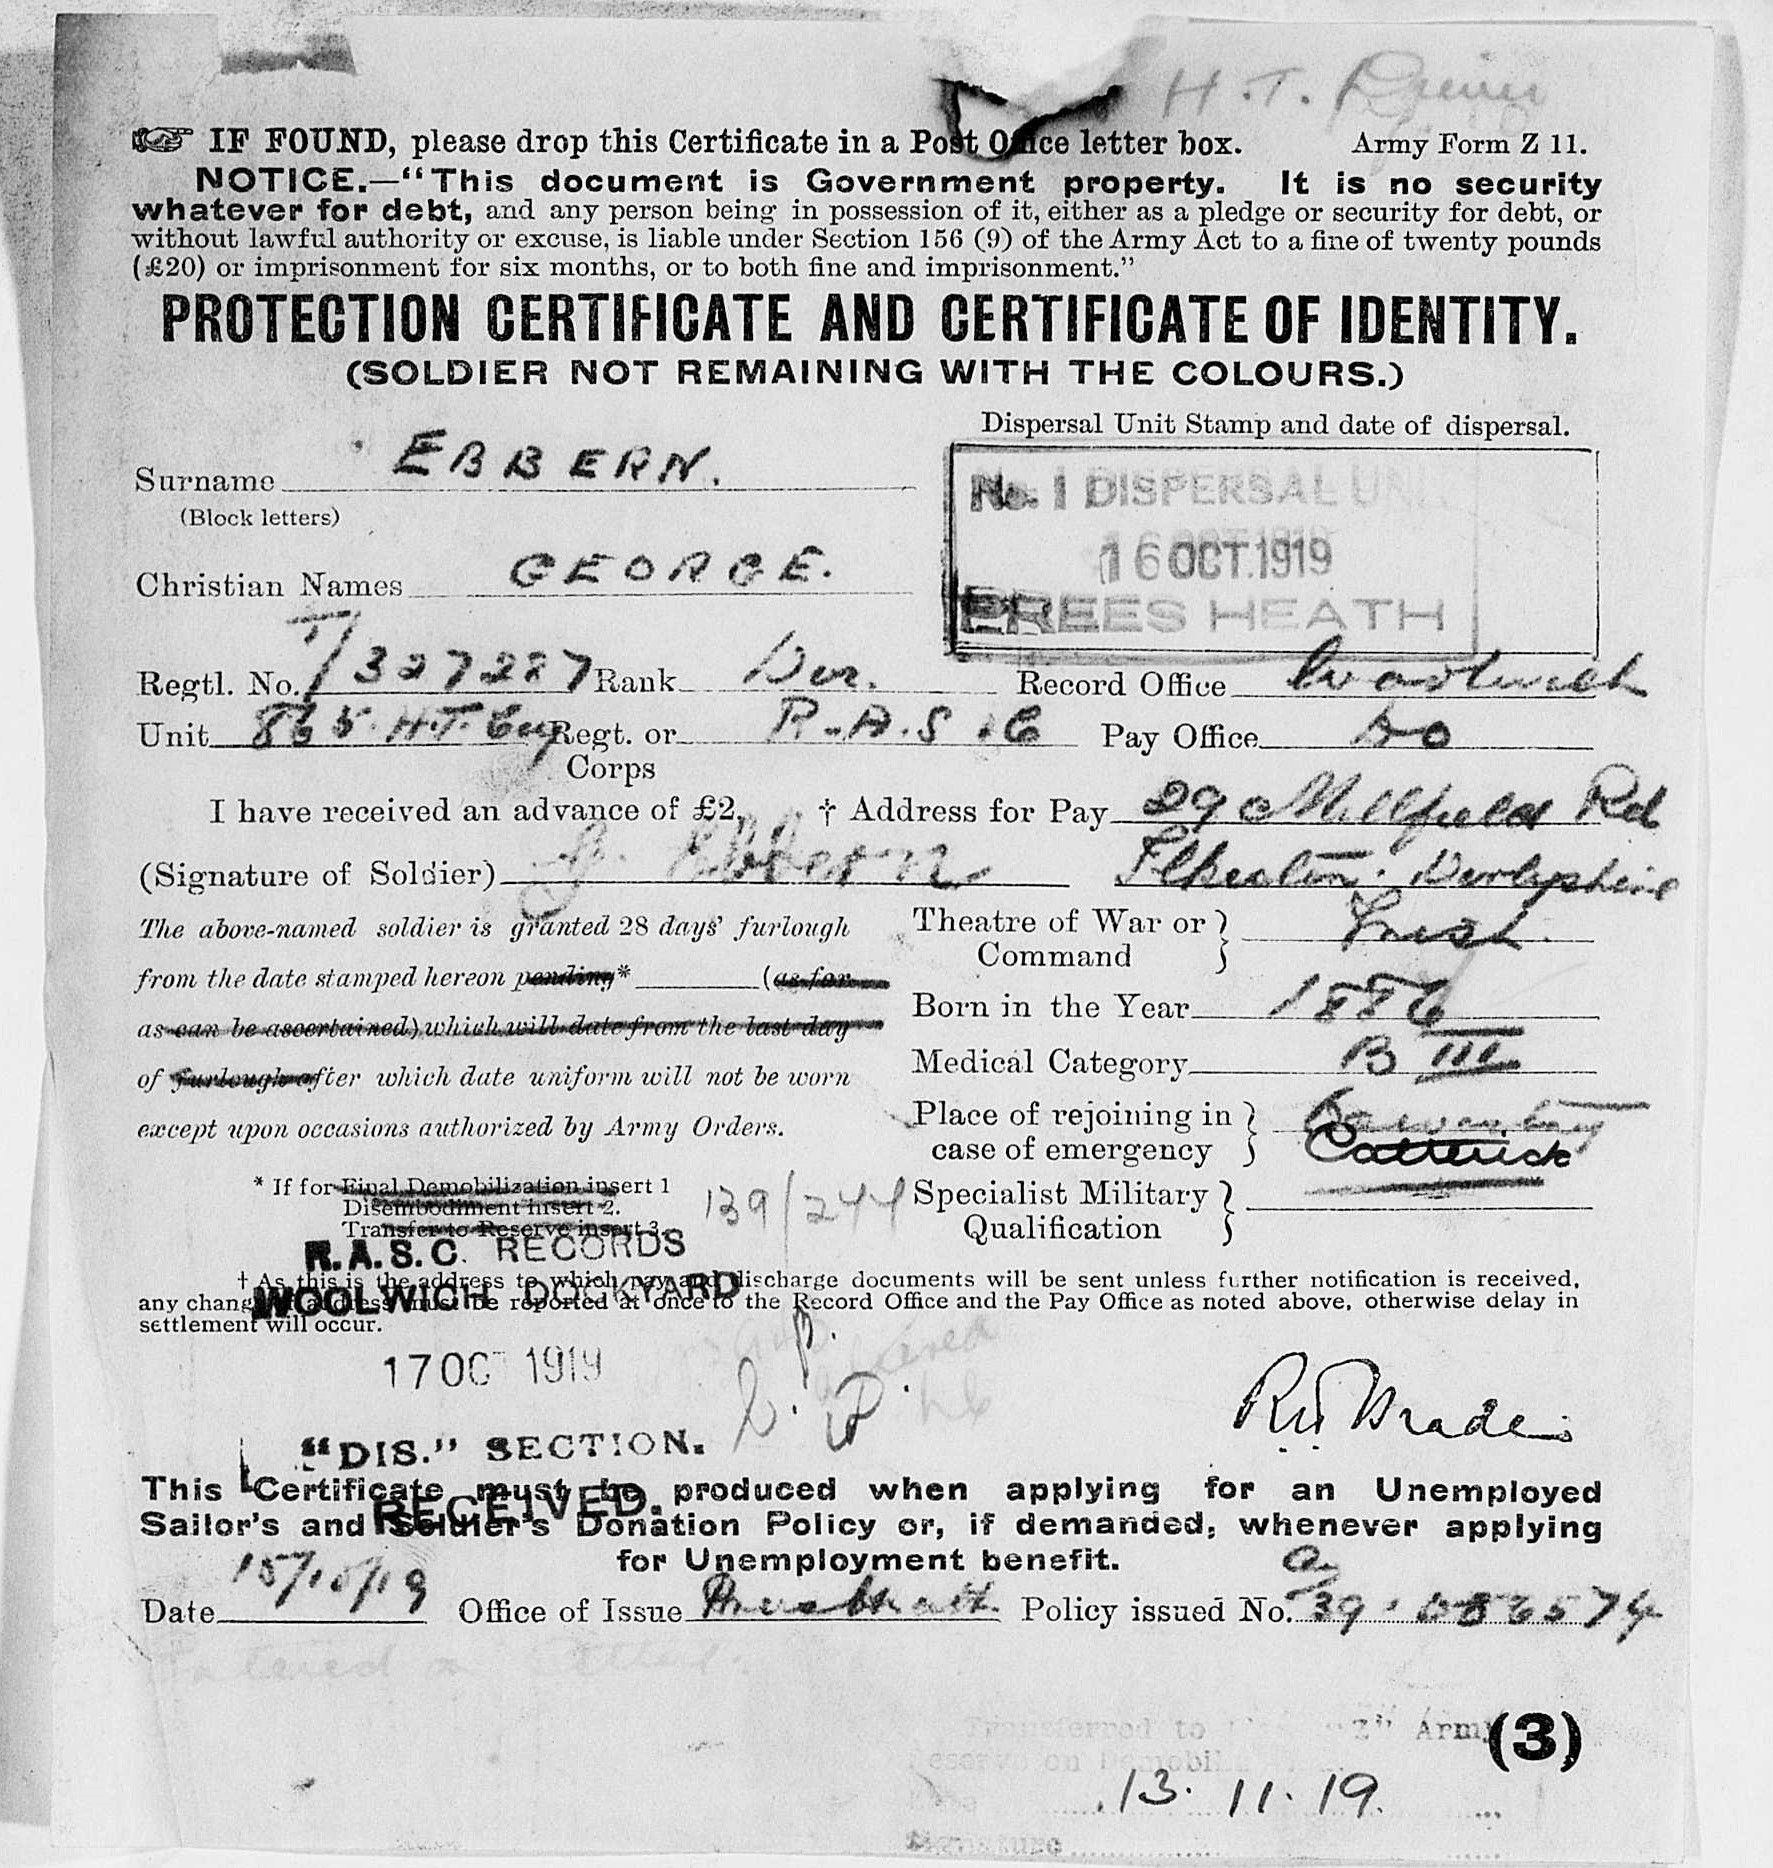 H.T.
☞ IF FOUND, please drop this Certificate in a Post Office letter box. Army Form Z 11.
NOTICE.—“This document is Government property. It is no security
whatever for debt, and any person being in possession of it, either as a pledge or security for debt, or
without lawful authority or excuse, is liable under Section 156 (9) of the Army Act to a fine of twenty pounds
(£20) or imprisonment for six months, or to both fine and imprisonment.”
PROTECTION CERTIFICATE AND CERTIFICATE OF IDENTITY.
(SOLDIER NOT REMAINING WITH THE COLOURS.)
Dispersal Unit Stamp and date of dispersal.
Surname EBBERN.
(Block letters)
No. 1 DISPERSAL UNI
16 OCT.1919
PREES HEATH
Christian Names GEORGE.
Regtl. No. T/327287 Rank Dvr. Record Office Woolwich
Unit 865. H.T. Coy Regt. or R.A.S.C Pay Office Do
Corps
I have received an advance of £2. † Address for Pay 29 Millfield Rd
(Signature of Soldier) G. Ebbern Ilkeston. Derbyshire
The above-named soldier is granted 28 days’ furlough
from the date stamped hereon pending* (as far
as can be ascertained) which will date from the last day
of furlough after which date uniform will not be worn
except upon occasions authorized by Army Orders.
Theatre of War or Command Irish.
Born in the Year 1886
Medical Category B III
Place of rejoining in
case of emergency Catterick
* If for Final Demobilization insert 1
Disembodiment insert 2.
Transfer to Reserve insert 3.
139/244
Specialist Military
Qualification
R.A.S.C. RECORDS
WOOLWICH DOCKYARD
† As this is the address to which pay and discharge documents will be sent unless further notification is received,
any change of address must be reported at once to the Record Office and the Pay Office as noted above, otherwise delay in
settlement will occur.
17 OCT 1919
“DIS.” SECTION.
RECEIVED.
This Certificate must be produced when applying for an Unemployed
Sailor’s and Soldier’s Donation Policy or, if demanded, whenever applying
for Unemployment benefit.
Date 15/10/19 Office of Issue Prees Heath Policy issued No. a/39.086574
Transferred to Z” Army
Reserve on Demobil
(3)
13.11.19.
Signature